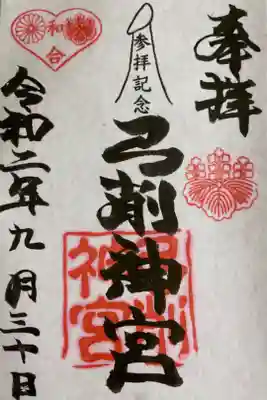 奉拝
参拝記念
弓削神宮
弓削神宮
和合
令和二年九月三十日